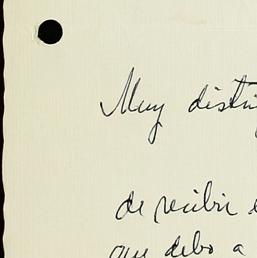 Muy distin
de recibir e
que debo a